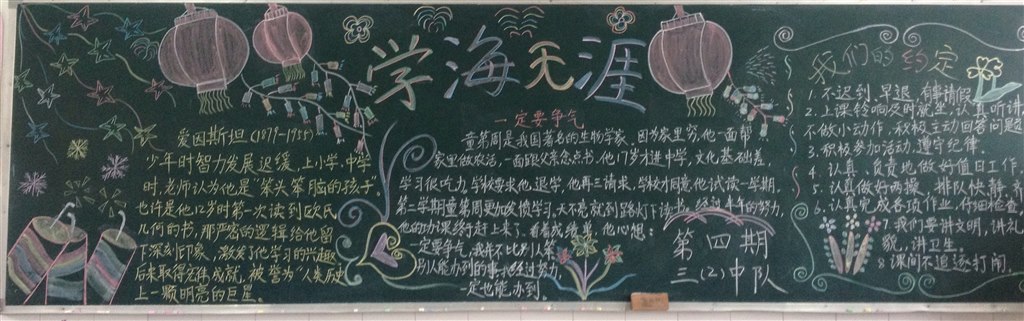 学海无涯
爱因斯坦(1879-1955)
少年时智力发展迟缓,上小学、中学
时,老师认为他是"笨头笨脑的孩子"
也许是他12岁时第一次读到欧氏
几何的书,那严密的逻辑给他留
下深刻印象,激发了他学习的兴趣
后来取得宏伟成就,被誉为"人类历史
上一颗明亮的巨星。
一定要争气
童第周是我国著名的生物学家。因为家里穷,他一面帮
家里做农活,一面跟父亲念点书。他17岁才进中学,文化基础差,
学习很吃力,学校要求他退学,他再三请求,学校才同意他试读一学期。
第二学期童第周更加发愤学习。天不亮就到路灯下读书。经过半年的努力,
他的功课终于赶上来了。看着成绩单,他心想:
一定要争气,我并不比别人笨
别人能办到的事,我经过努力,
一定也能办到。
第四期
三(2)中队
我们的约定
1.不迟到、早退,有事请假
2.上课铃响及时就坐,认真听讲
不做小动作,积极主动回答问题
3.积极参加活动,遵守纪律。
4.认真、负责地做好值日工作
5.认真做好两操、排队快、静、齐
6.认真完成各项作业,仔细检查。
7.我们要讲文明,讲礼
貌,讲卫生。
8.课间不追逐打闹。